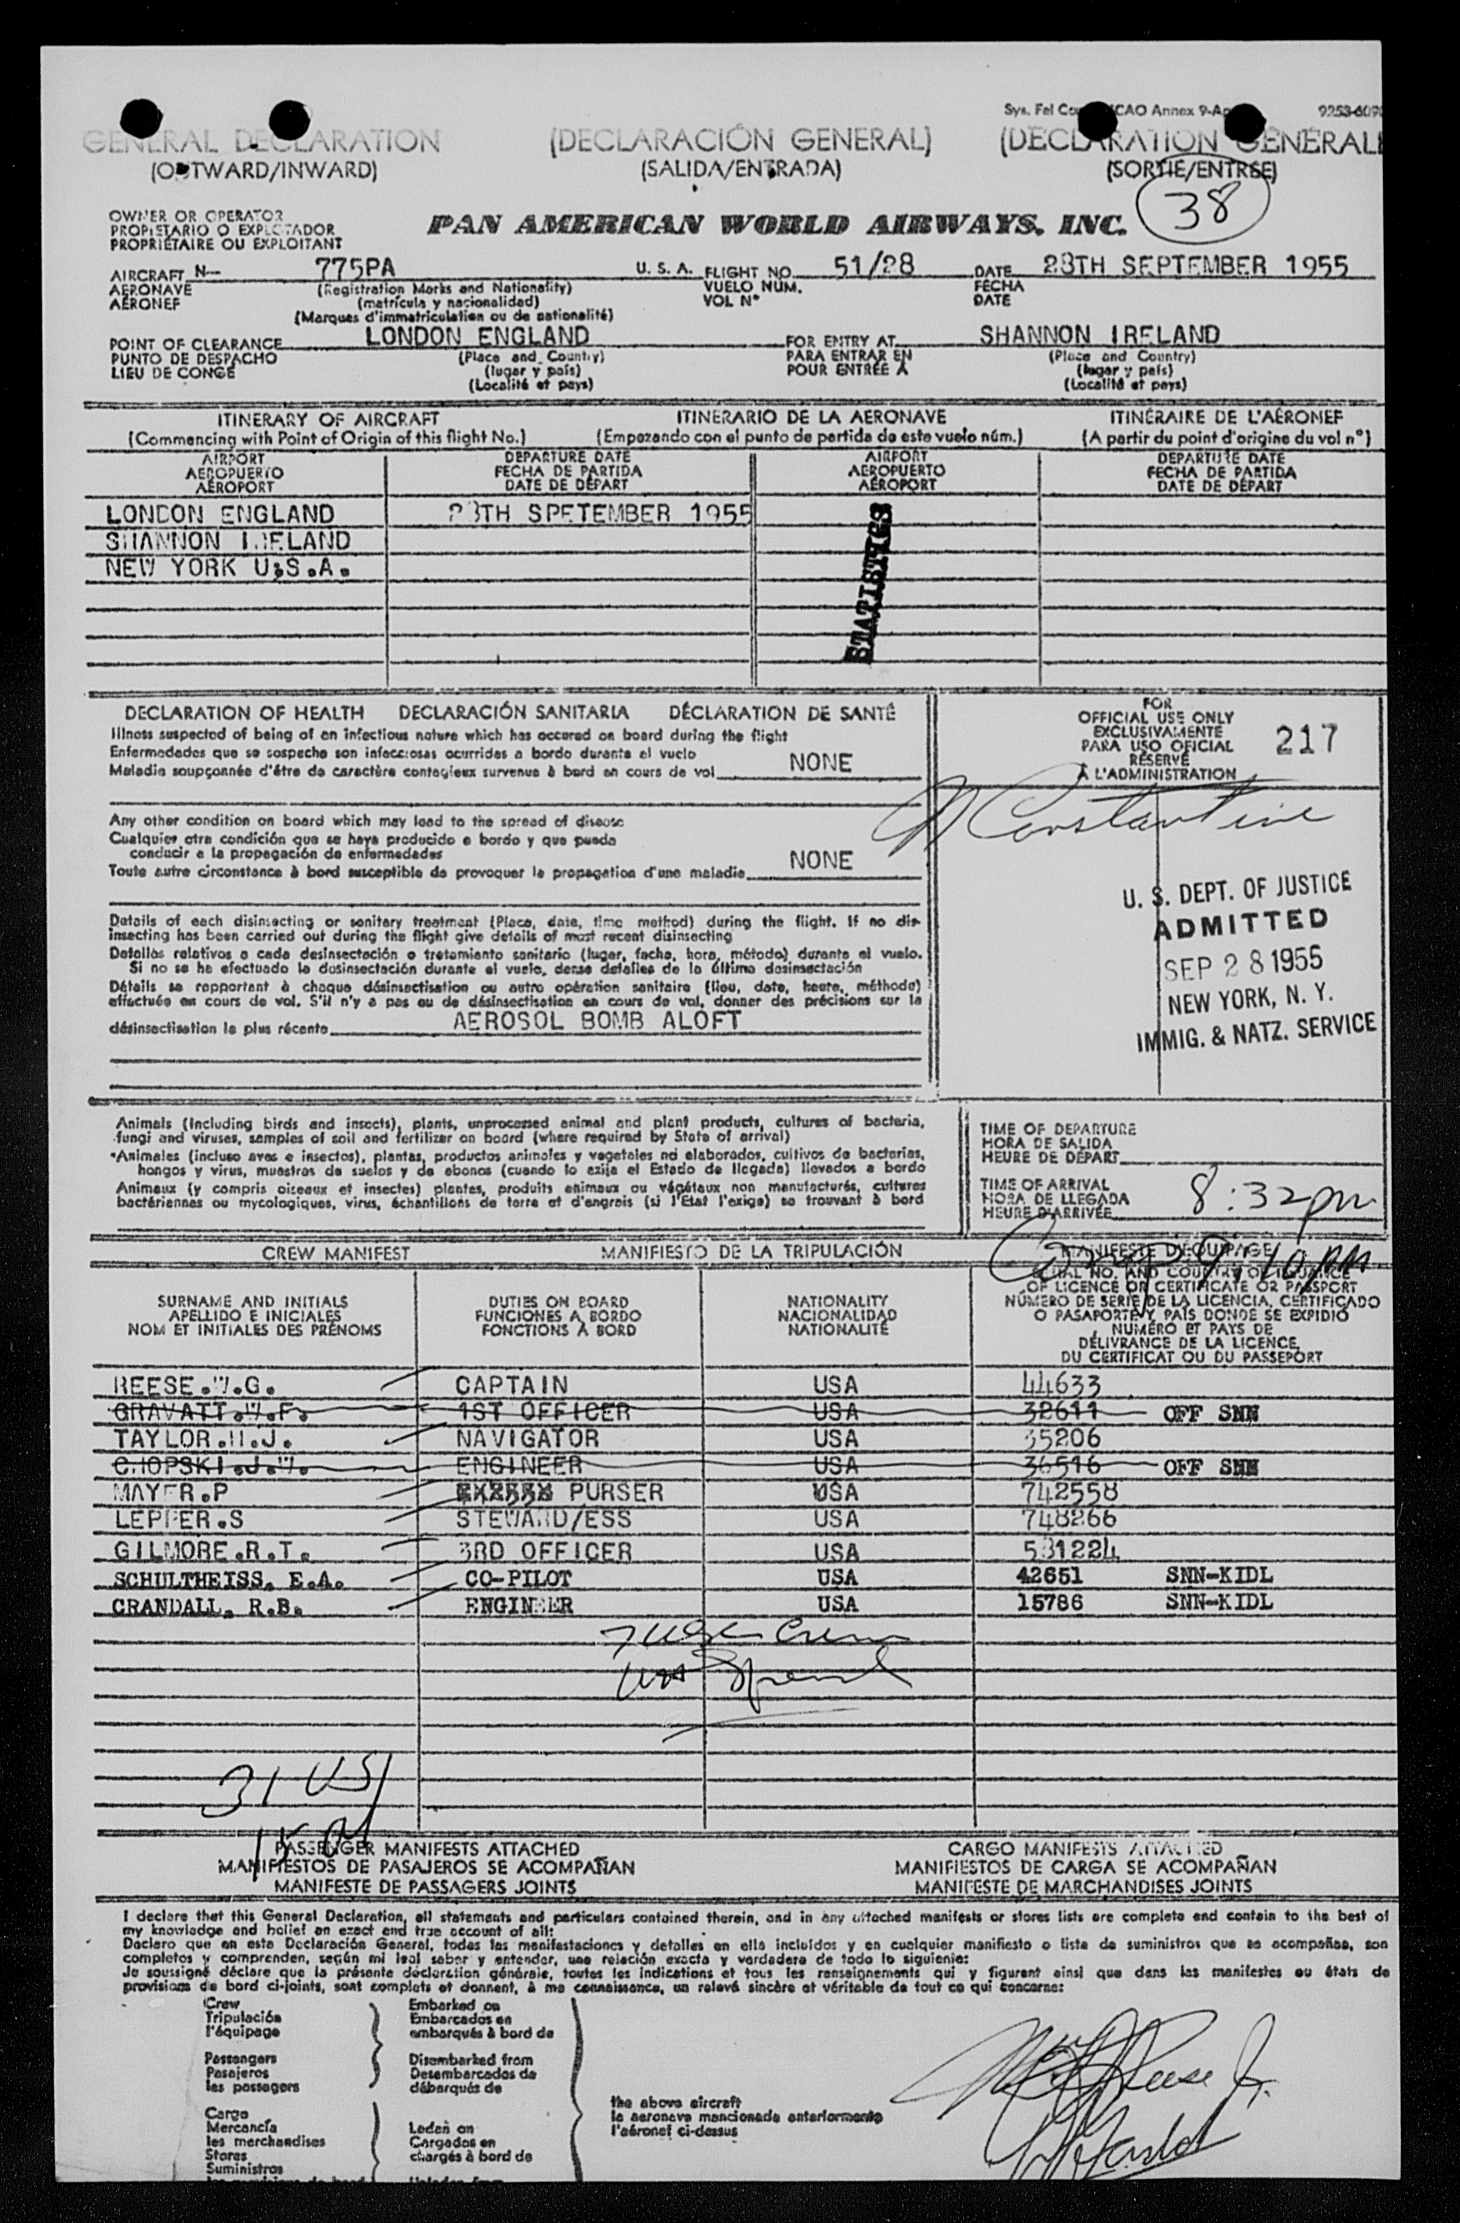 Sys. Fel CAO Annex 9-Ap 9253-609
GENERAL DECLARATION (DECLARACIÓN GENERAL) (DECLARATION GENERALE
(OUTWARD/INWARD) (SALIDA/ENTRADA) (SORTIE/ENTREE)
38
OWNER OR OPERATOR
PROPIETARIO O EXPLOTADOR
PROPRIÉTAIRE OU EXPLOITANT
PAN AMERICAN WORLD AIRWAYS, INC.
AIRCRAFT N- 775PA U. S. A. FLIGHT NO. 51/28 DATE 28TH SEPTEMBER 1955
AERONAVE (Registration Marks and Nationality) VUELO NÚM. FECHA
AÉRONEF (matrícula y nacionalidad) VOL N° DATE
(Marques d'immatriculation ou de nationalité)
POINT OF CLEARANCE LONDON ENGLAND FOR ENTRY AT SHANNON IRELAND
PUNTO DE DESPACHO (Place and Country) PARA ENTRAR EN (Place and Country)
LIEU DE CONGÉ (lugar y país) POUR ENTRÉE A (lugar y país)
(Localité et pays) (Localité et pays)
ITINERARY OF AIRCRAFT ITINERARIO DE LA AERONAVE ITINÉRAIRE DE L'AÉRONEF
(Commencing with Point of Origin of this flight No.) (Empezando con el punto de partida de este vuelo núm.) (A partir du point d'origine du vol n°)
AIRPORT DEPARTURE DATE AIRPORT DEPARTURE DATE
AEROPUERTO FECHA DE PARTIDA AEROPUERTO FECHA DE PARTIDA
AÉROPORT DATE DE DÉPART AÉROPORT DATE DE DÉPART
LONDON ENGLAND 28TH SPETEMBER 1955
SHANNON IRELAND
NEW YORK U.S.A.
STATISTICS
DECLARATION OF HEALTH DECLARACIÓN SANITARIA DÉCLARATION DE SANTÉ
Illness suspected of being of an infectious nature which has occured on board during the flight
Enfermedades que se sospecha son infecciosas ocurridas a bordo durante el vuelo
Maladie soupçonnée d'être de caractère contagieux survenue à bord en cours de vol NONE
FOR
OFFICIAL USE ONLY
EXCLUSIVAMENTE
PARA USO OFICIAL
RÉSERVÉ
À L'ADMINISTRATION
217
Constantine
Any other condition on board which may lead to the spread of disease
Cualquier otra condición que se haya producido a bordo y que pueda
conducir a la propagación de enfermedades
Toute autre circonstance à bord susceptible de provoquer la propagation d'une maladie NONE
U. S. DEPT. OF JUSTICE
ADMITTED
SEP 28 1955
NEW YORK, N. Y.
IMMIG. & NATZ. SERVICE
Details of each disinsecting or sanitary treatment (Place, date, time method) during the flight. If no dis-
insecting has been carried out during the flight give details of most recent disinsecting
Detalles relativos a cada desinsectación o tratamiento sanitario (lugar, fecha, hora, método) durante el vuelo.
Si no se ha efectuado la desinsectación durante el vuelo, dense detalles de la última desinsectación
Détails se rapportant à chaque désinsectisation ou autre opération sanitaire (lieu, date, heure, méthode)
effectuée en cours de vol. S'il n'y a pas eu de désinsectisation en cours de vol, donner des précisions sur la
désinsectisation la plus récente AEROSOL BOMB ALOFT
Animals (Including birds and insects), plants, unprocessed animal and plant products, cultures of bacteria,
fungi and viruses, samples of soil and fertilizer on board (where required by State of arrival)
*Animales (incluso aves e insectos), plantas, productos animales y vegetales no elaborados, cultivos de bacterias,
hongos y virus, muestras de suelos y de abonos (cuando lo exija el Estado de llegada) llevados a bordo
Animaux (y compris oiseaux et insectes) plantes, produits animaux ou végétaux non manufacturés, cultures
bactériennes ou mycologiques, virus, échantillons de terre et d'engrais (si l'État l'exige) se trouvant à bord
TIME OF DEPARTURE
HORA DE SALIDA
HEURE DE DÉPART
TIME OF ARRIVAL
HORA DE LLEGADA
HEURE D'ARRIVÉE
8:32pm
9:10 PM
CREW MANIFEST MANIFIESTO DE LA TRIPULACIÓN MANIFESTE D'EQUIPAGE
SURNAME AND INITIALS DUTIES ON BOARD NATIONALITY SERIAL NO. AND COUNTRY OF ISSUANCE
APELLIDO E INICIALES FUNCIONES A BORDO NACIONALIDAD OF LICENCE OR CERTIFICATE OR PASSPORT
NOM ET INITIALES DES PRÉNOMS FONCTIONS À BORD NATIONALITÉ NÚMERO DE SERIE DE LA LICENCIA, CERTIFICADO
O PASAPORTE Y PAÍS DONDE SE EXPIDIÓ
NUMÉRO ET PAYS DE
DÉLIVRANCE DE LA LICENCE,
DU CERTIFICAT OU DU PASSEPORT
REESE.W.G. CAPTAIN USA 44633
GRAVATT.W.F. 1ST OFFICER USA 32611 OFF SNN
TAYLOR.H.J. NAVIGATOR USA 35206
CHOPSKI.J.W. ENGINEER USA 36516 OFF SNN
MAYER.P PURSER USA 742558
LEPPER.S STEWARD/ESS USA 748266
GILMORE.R.T. 3RD OFFICER USA 531224
SCHULTHEISS. E.A. CO-PILOT USA 42651 SNN-KIDL
CRANDALL, R.B. ENGINEER USA 15786 SNN-KIDL
31 US
PASSENGER MANIFESTS ATTACHED CARGO MANIFESTS ATTACHED
MANIFIESTOS DE PASAJEROS SE ACOMPAÑAN MANIFIESTOS DE CARGA SE ACOMPAÑAN
MANIFESTE DE PASSAGERS JOINTS MANIFESTE DE MARCHANDISES JOINTS
I declare that this General Declaration, all statements and particulars contained therein, and in any attached manifests or stores lists are complete and contain to the best of
my knowledge and belief an exact and true account of all:
Declaro que en esta Declaración General, todas las manifestaciones y detalles en ella incluídos y en cualquier manifiesto o lista de suministros que se acompañan, son
completos y comprenden, según mi leal saber y entender, una relación exacta y verdadera de todo lo siguiente:
Je soussigné déclare que la présente déclaration générale, toutes les indications et tous les renseignements qui y figurent ainsi que dans les manifestes ou états de
provisions de bord ci-joints, sont complets et donnent, à ma connaissance, un relevé sincère et véritable de tout ce qui concerne:
Crew Embarked on
Tripulación Embarcados en
l'équipage embarqués à bord de
Passengers Disembarked from
Pasajeros Desembarcados de
les passagers débarqués de
the above aircraft
la aeronave mencionada anteriormente
l'aéronef ci-dessus
Cargo
Mercancía Laden on
les merchandises Cargados en
Stores chargés à bord de
Suministros
Reese Jr.